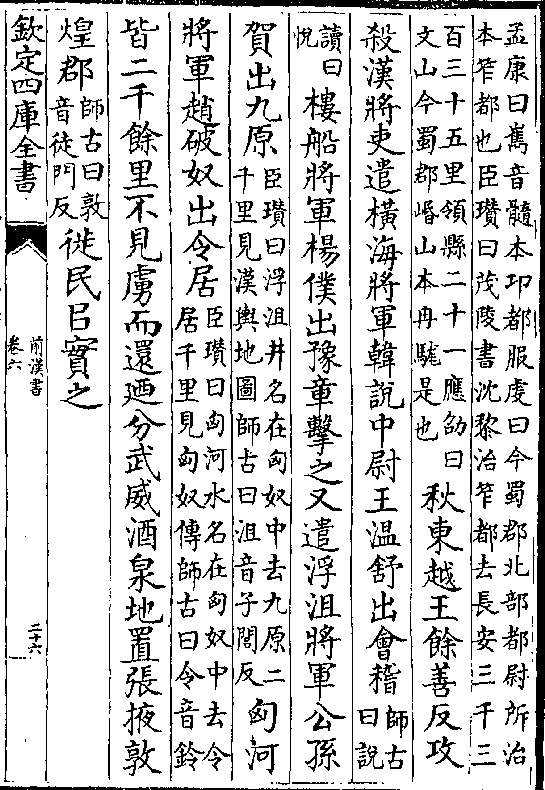 孟康曰嶲音髓本卭都服虔曰今蜀郡北部都尉所治
本笮都也臣瓚曰茂陵書沈黎治笮都去長安三千三
百三十五里領縣二十一應劭曰
文山今蜀郡㟭山本冉駹是也
秋東越王餘善反攻
殺漢將吏遣橫海將軍韓說中尉王温舒出會稽
師古
曰說
讀曰
悅
樓船將軍楊僕出豫章擊之又遣浮沮將軍公孫
賀出九原
臣瓚曰浮沮井名在匈奴中去九原二
千里見漢輿地圖師古曰沮音子閭反
匈河
將軍趙破奴出令居
臣瓚曰匈河水名在匈奴中去令
居千里見匈奴傳師古曰令音鈴
皆二千餘里不見虜而還廼分武威酒泉地置張掖敦
煌郡
師古曰敦
音徒門反
徙民㠯實之
欽定四庫全書
前漢書
卷六
二十六